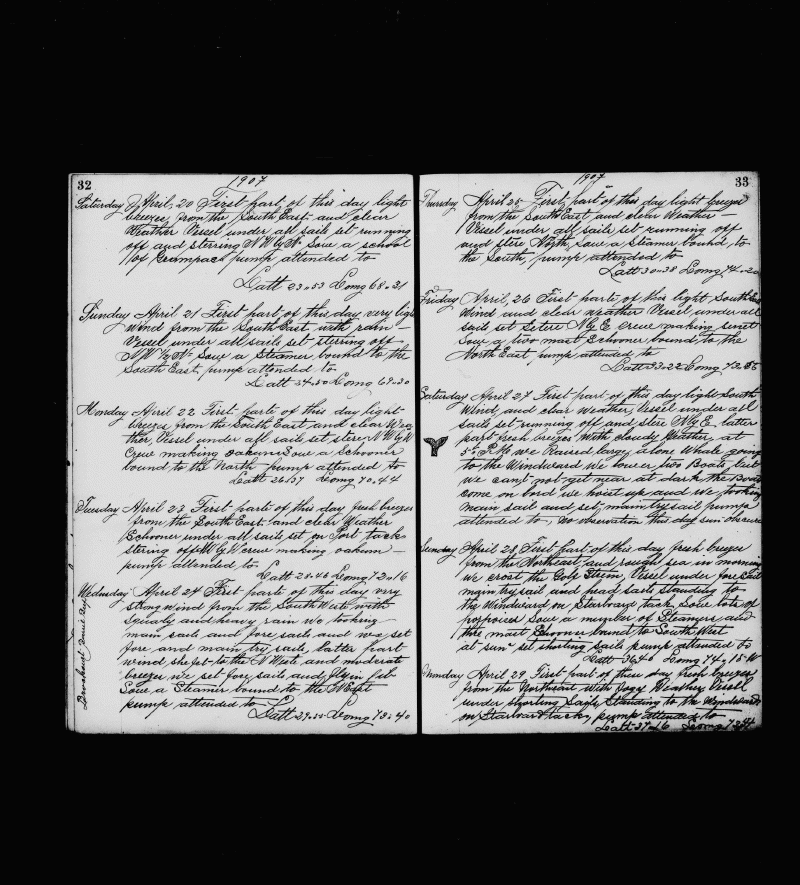 32
1907
Saturday April, 20 First part, of this day light
breezes, from the South East and clear
Weather Vessel under all sails set running
off and sterring N W by N Sow a school
of Grampaces pump attended to
Latt 23.53 Long 68.31
Sunday April 21 First part of this day very ligh
Wind from the South East, with rain —
Vessel under all sails set sterring off
N W by N Sow a Steamer bound to the
South East, pump attended to
Latt 24.50 Long 69.30
Monday April 22 First parte of this day light
breezes from the South East and clear Wea
ther, Vessel under all sails set stere N W by W
Crew making oakum Sow a Schroner
bound to the North pump attended to
Latt Long 70.44
Tuesday April 23 First parte of this day fresh breezes
from the South East, and clear Weather
Schroner under all sails set on Port tack
stering off W by W crew making oakum —
pump attended to
Latt 28.46 Long 72.16
Wednesday April 24 First parte of this day very
strong wind from the South West with
Squaly and heavy rain We tooking
main sails and fore sails and we set
fore and main try sails latter part
wind shefet to the N West and moderate
breezes we set fore sails and flyin jeb
Sow a Steamer bound to the N East
pump attended to
Latt 29.55 Long 73.40
33
1907
Thursday April 25 First part of this day light breezes
from the South East and clear Weather —
Vessel under all sails set running off
and stere North, Sow a Steamer bound to
the South, pump attended to
Latt 30.38 Long 74.20
Friday April, 26 First parte of this light South Eas
Wind and clear weather Vessel under all
sails set Stere N by E Crewe making
Sow a two mast Schroner bound to the
North East pump attended to
Latt 32.22 Long 73.55
Saturday April 27 First part, of this day light South
Wind, and clear Weather, Vessel under all
sails set running off and stere N by E latter
part fresh breezes With cloudy Weather, at
5 P.M. we Raised large alone Whale going
to the Windward We lower, two Boats, but
we can't not get near at dark the Boats
come on bord we hoist up and we tooking
main sail and set, main try sail pump
attended to, No observation this day sun obscure
Sunday April 28 First part of this day fresh breezes
from the Northeast, and rough sea in morning
We crost the Golf Streem, Vessel under fore sail
main try sail and head sails Standing to
the Windward on Starboard tack, Sow lots of
porposes Sow a number of Steamers and
thre mast Schroner bound to South West
at sun set shorting sails pump attended to
Latt 36.40 Long 74.15 W
Monday April 29 First part of this day fresh breezes
from the Northeast with fogy Weather, Vessel
under shorting Sails, Standing to the Wyndward
on Starboard tack, pump attended to
Latt 37.16 Long